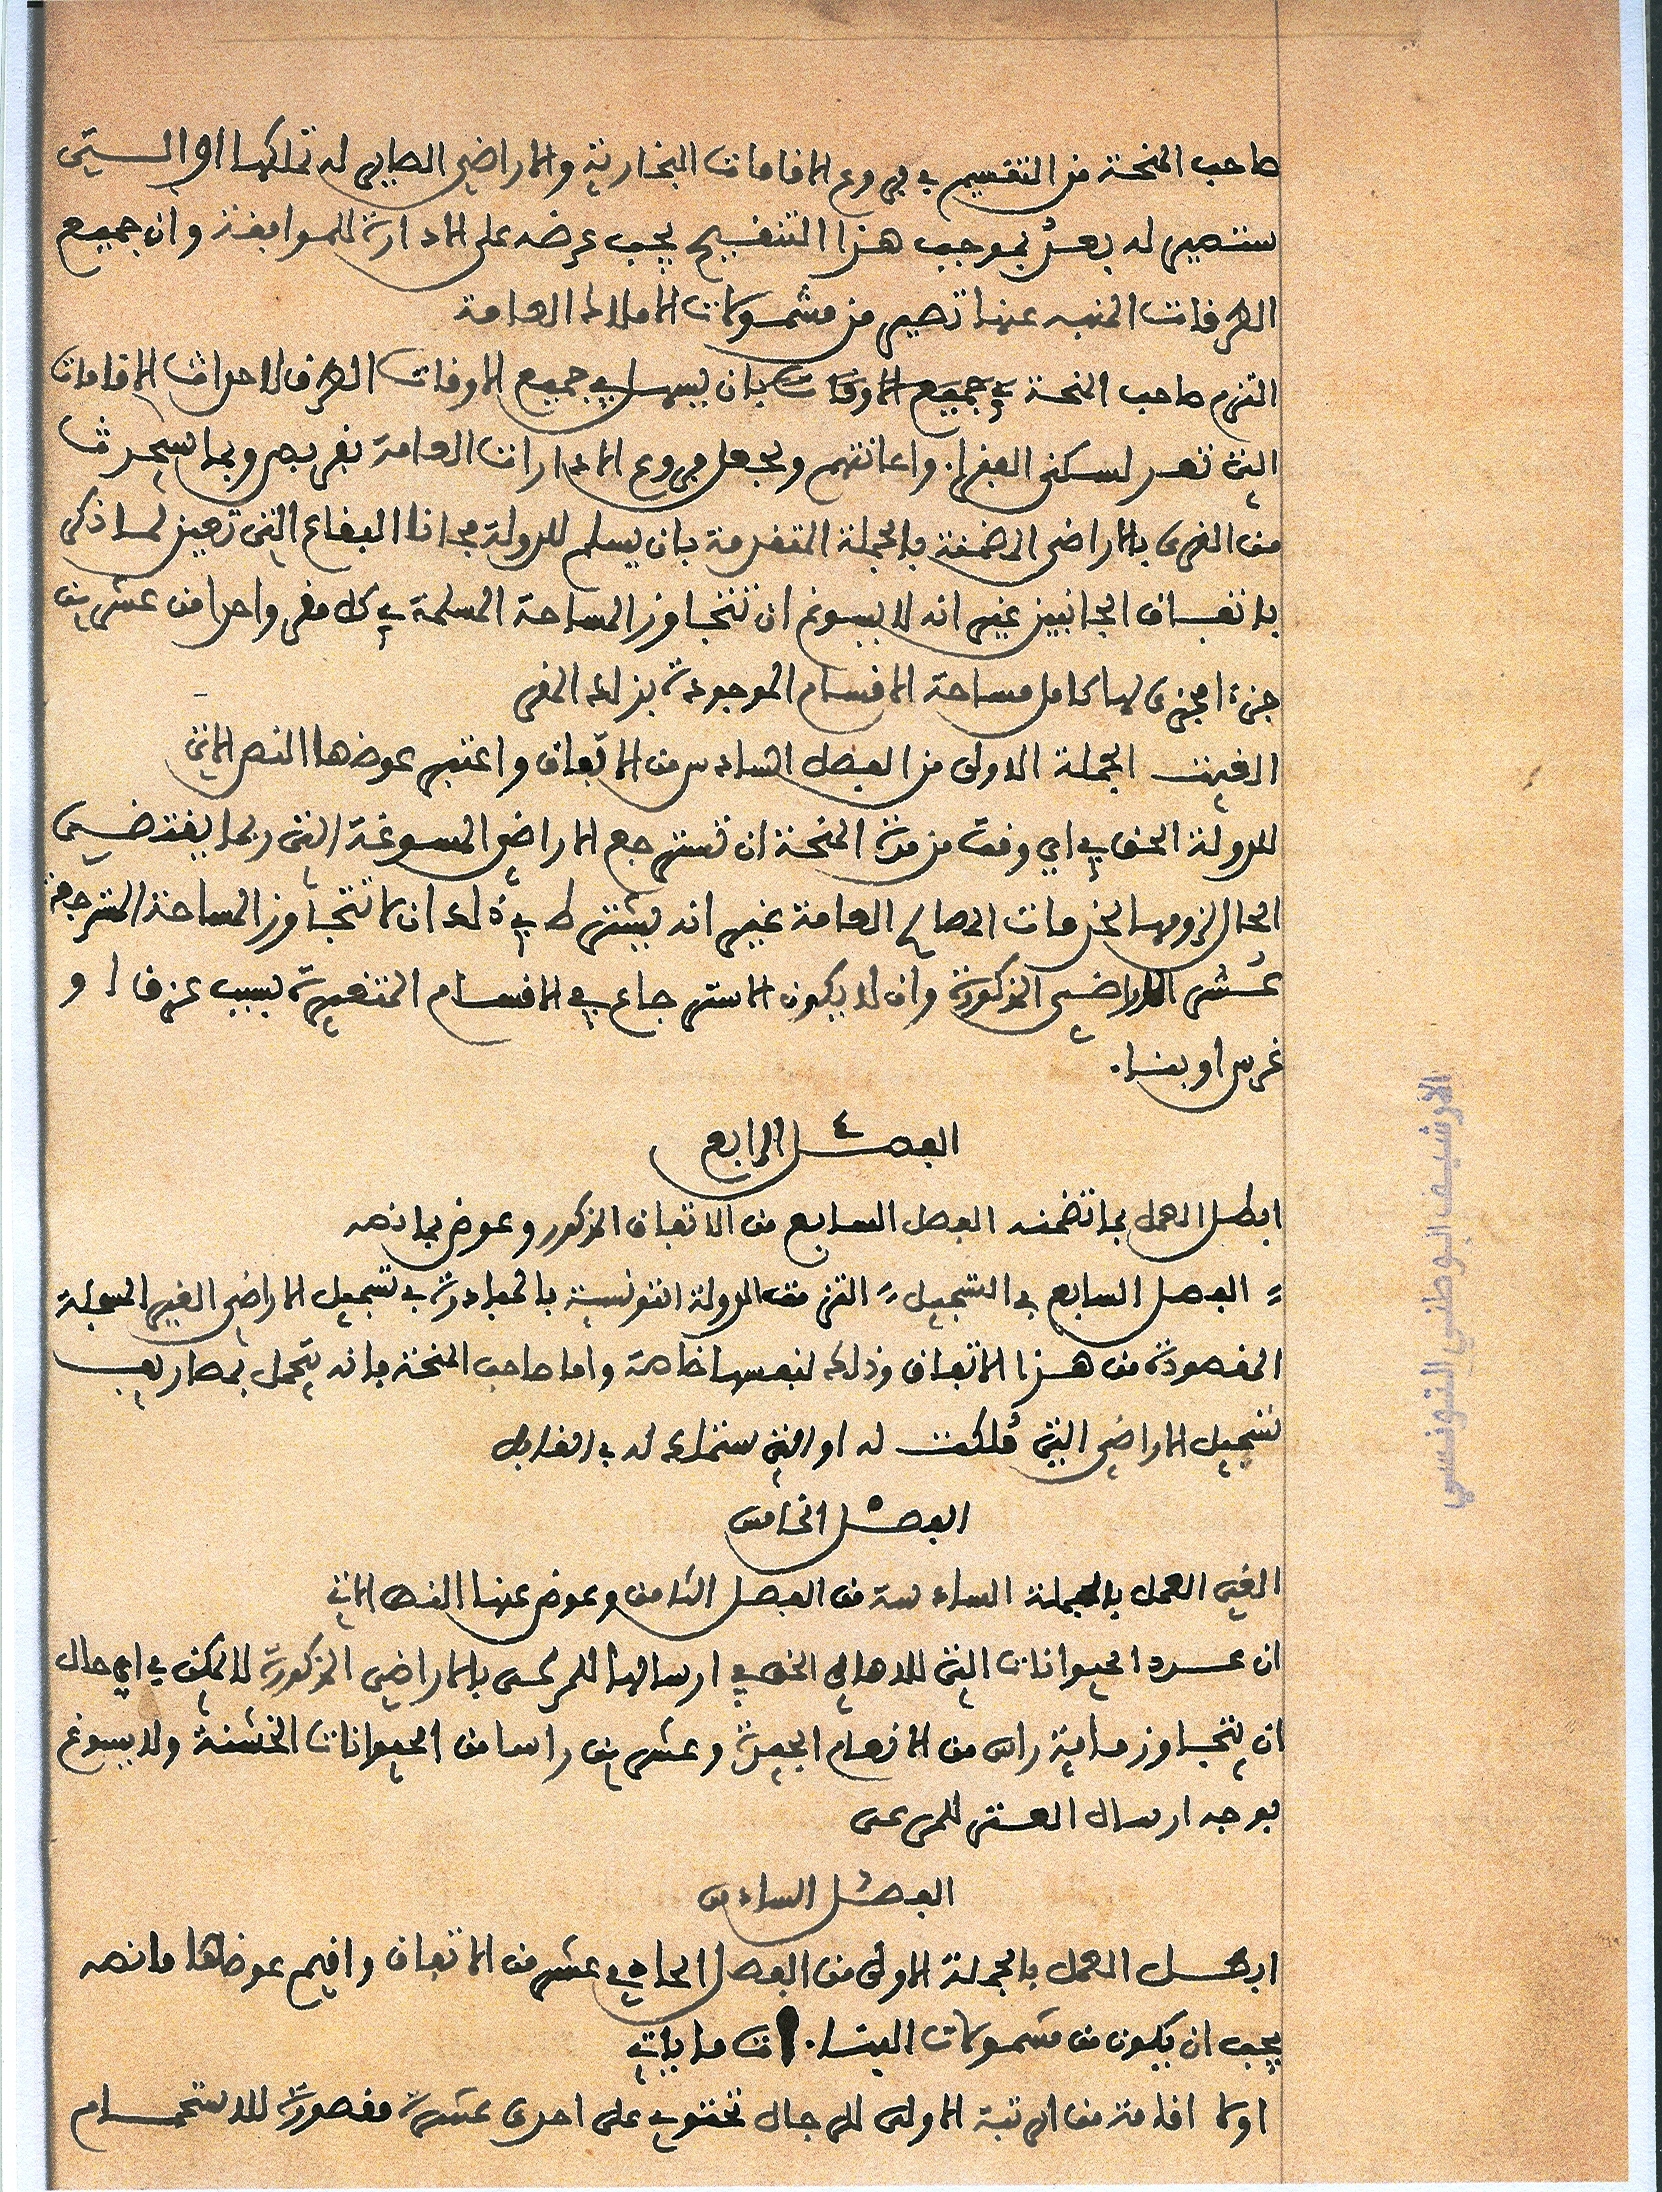 صاحب المنحة من التقسيم في فروع الاقامات البخارية والاراضي الصاير له تملكها او التي
ستصير له بعدُ بموجب هذا التنقيح يجب عرضه على الادارة للموافقة وان جميع
الطرقات المنبه عنها تصير من مشمولات الاملاك العامة
التزم صاحب المنحة في جميع الاوقات بان يسهل في جميع الاوقات الطرق لاحداث الاقامات
التي تعد لسكنى الفقراء واعانتهم ويجعل فروع الادارات العامة بقربص وبما سيحدث
من القرى بالاراضي المضمنة بالجملة المتقدمة بان يسلم للدولة مجانا البقاع التي تعين لما ذكر
باتفاق الجانبين غير انه لا يسوغ ان تتجاوز المساحة المسلمة في كل مقر واحدا من عشرين
جزءا مجزى لها كامل مساحة الاقسام الموجودة بذلك المقر
الغيت الجملة الاولى من الفصل السادس من الاتفاق واعتبر عوضها النص الاتي
للدولة الحق في اي وقت من مدة المنحة ان تسترجع الاراضي المسوغة التي ربما يقتضي
الحال لزومها لخدمات المصالح العامة غير انه يشترط في ذلك ان لا تتجاوز المساحة المسترجعة
عُشر الاراضي المذكورة وان لا يكون الاسترجاع في الاقسام المتغيرة بسبب عزق او
غرس او بناء.
الفصل ٤ الرابع
ابطل العمل بما تضمنه الفصل السابع من الاتفاق المذكور وعوض بما نصه
" الفصل السابع في التسجيل " التزمت الدولة التونسية بالمبادرة في تسجيل الاراضي الغير المسجلة
المقصودة من هذا الاتفاق وذلك لنفسها خاصة واما صاحب المنحة فانه يتحمل بمصاريف
تسجيل الاراضي التي مُلكت له او التي ستملك له في القابل
الفصل ٥ الخامس
الغي العمل بالجملة السادسة من الفصل الثامن وعوض عنها النص الاتي
ان عدد الحيوانات التي للاهالي الحق في ارسالها للمرعى بالاراضي المذكورة لا يمكن في اي حال
ان يتجاوز ماية راس من الانعام الجيدة وعشرين راسا من الحيوانات الخشنة ولا يسوغ
بوجه ارسال العنز للمرعى
الفصل ٦ السادس
ابطل العمل بالجملة الاولى من الفصل الحادي عشر من الاتفاق واقيم عوضها ما نصه
يجب ان يكون من مشمولات البناءات ما ياتي
اولا اقامة من الرتبة الاولى للرجال تحتوي على احدى عشرة مقصورة للاستحمام
الأرشيف الوطني التونسي